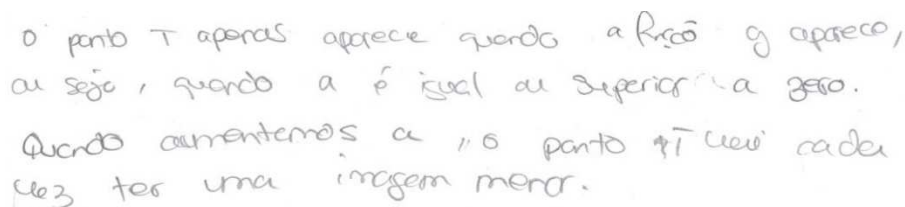 O ponto T apenas aparece quando a função g aparece,
ou seja, quando a é igual ou superior a zero.
Quando aumentamos a, o ponto T vai cada
vez ter uma imagem menor.